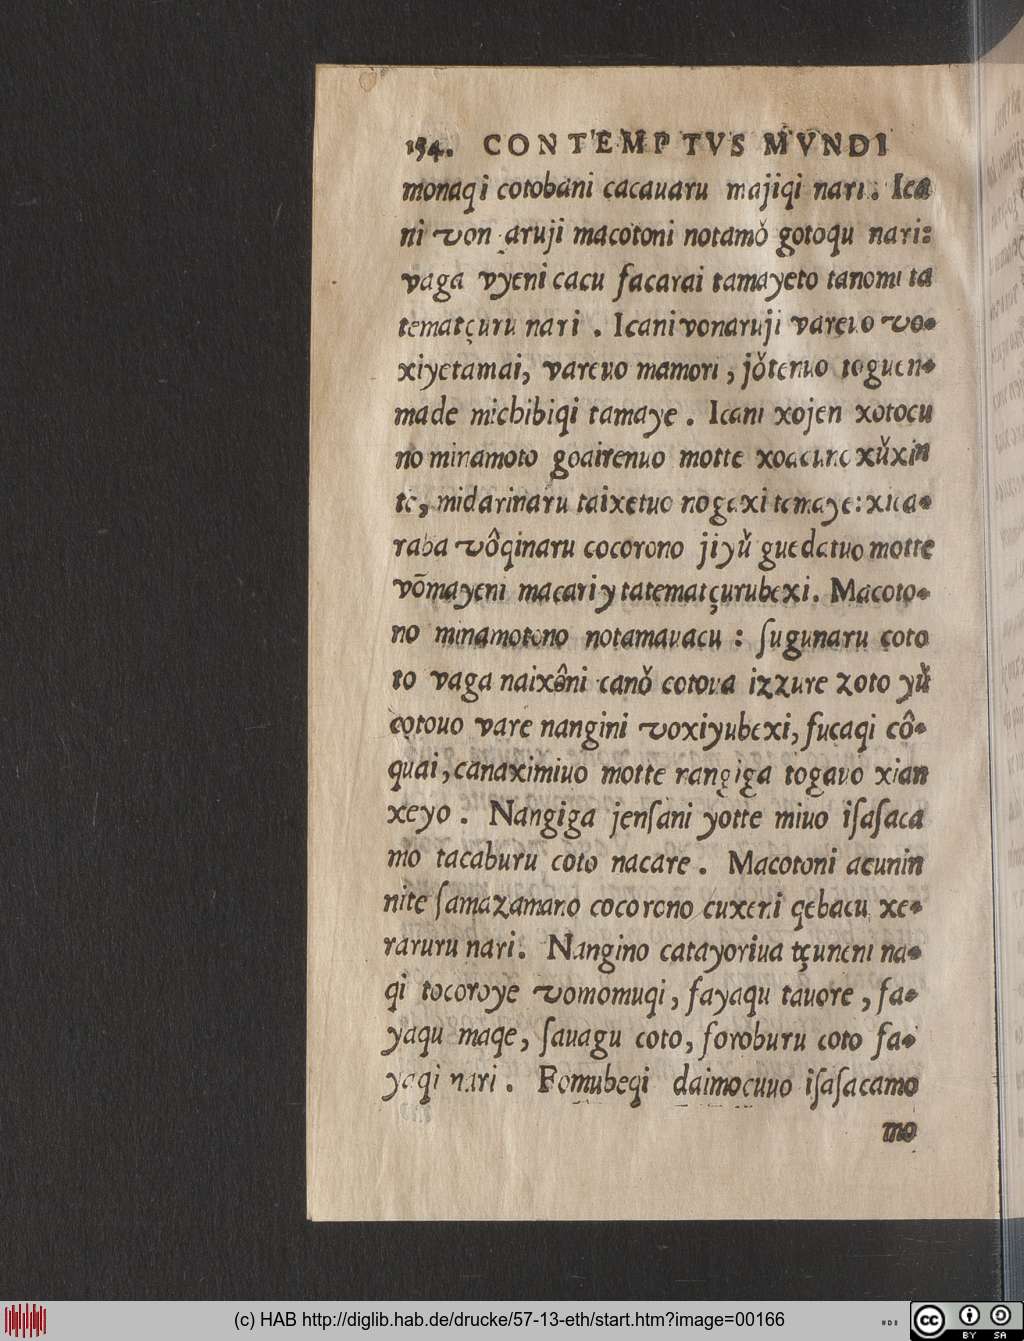 154. CONTEMPTVS MVNDI
monaqi cotobani cacauaru majiqi nari. Ica
ni von aruji macotoni notamǒ gotoqu nari:
vaga vyeni cacu facarai tamayeto tanomi ta
tematçuru nari. Icani vonaruji vareuo vo-
xiyetamai, vareuo mamori, jǒteruo toguen-
made michibiqi tamaye. Icani xojen xotocu
no minamoto goaitenuo motte xoacuno xǔxin
to, midarinaru taixetuo nogaxi tamaye: xica-
raba vôqinaru cocorono jiyǔ guedatuo motte
võmayeni macariy tatematçurubexi. Macoto-
no minamotono notamauacu: sugunaru coto
to vaga naixôni canǒ cotoua izzure zoto yǔ
cotouo vare nangini voxiyubexi, fucaqi cô-
quai, canaximiuo motte rangiga togauo xian
xeyo. Nangiga jensani yotte miuo isasaca
mo tacaburu coto nacare. Macotoni acunin
nite samazamano cocorono cuxeni qebacu xe-
raruru nari. Nangino catayoriua tçuneni na-
qi tocoroye vomomuqi, fayaqu tauore, fa-
yaqu maqe, sauagu coto, foroburu coto fa-
yaqi nari. Fomubeqi daimocuuo isasacamo
mo
(c) HAB http://diglib.hab.de/drucke/57-13-eth/start.htm?image=00166
cc BY SA